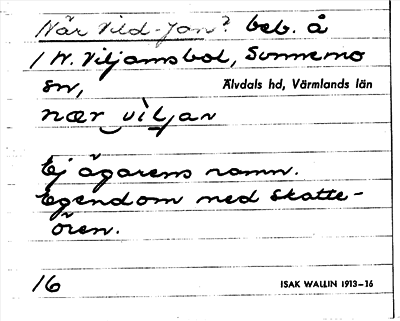 När Vild-Jan? beb. å
1 N. Viljamsbol, Sunnemo
sn, Älvdals hd, Värmlands län
nær viljan
Ej ägarens namn.
Egendom med skatte-
ören.
16 ISAK WALLIN 1913–16